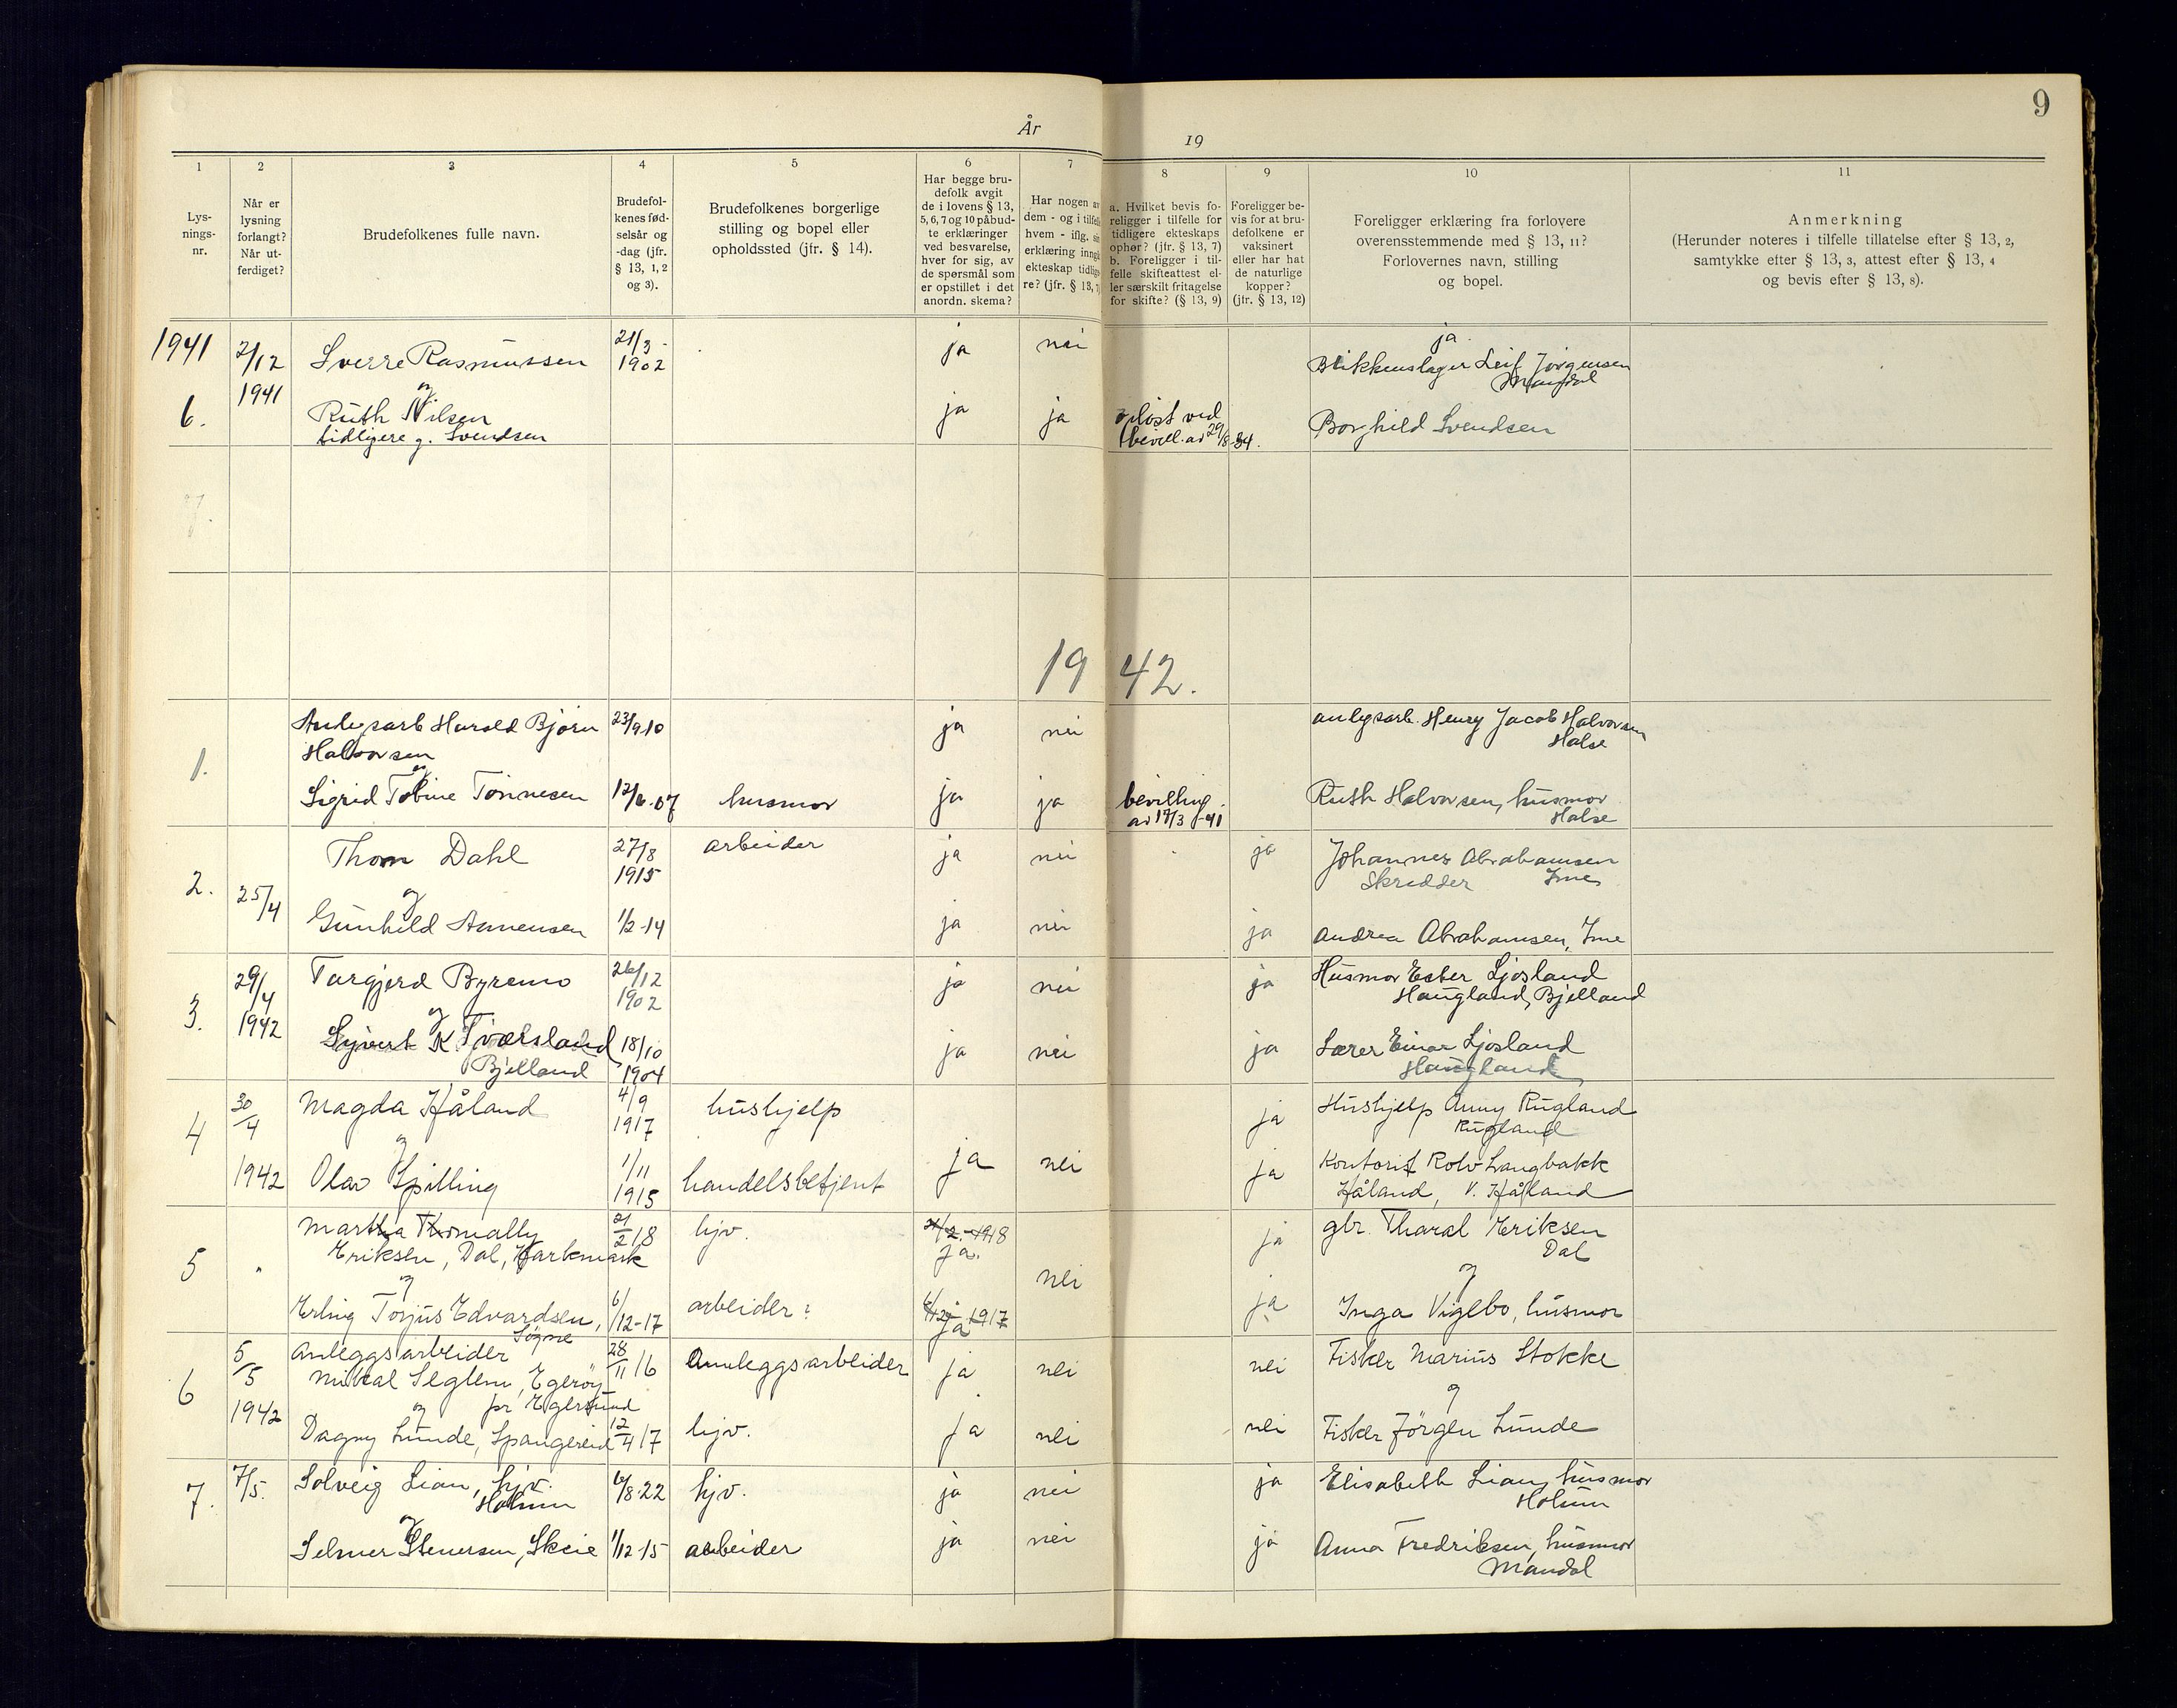 9
År 19
1
Lys-
nings-
nr.
2
Når er
lysning
forlangt?
Når ut-
ferdiget?
3
Brudefolkenes fulle navn.
4
Brudefol-
kenes fød-
selsår og
-dag (jfr.
§ 13, 1, 2
og 3).
5
Brudefolkenes borgerlige
stilling og bopel eller
opholdssted (jfr. § 14).
6
Har begge bru-
defolk avgit
de i lovens § 13,
5, 6, 7 og 10 påbud-
te erklæringer
ved besvarelse,
hver for sig, av
de spørsmål som
er opstillet i det
anordn. skema?
7
Har nogen av
dem - og i tilfelle
hvem - iflg. sin
erklæring inngå
ekteskap tidlig
re? (jfr. § 13, 7
8
a. Hvilket bevis fo-
religger i tilfelle for
tidligere ekteskaps
ophør? (jfr. § 13, 7)
b. Foreligger i til-
felle skifteattest el-
ler særskilt fritagelse
for skifte? (§ 13, 9)
9
Foreligger be-
vis for at bru-
defolkene er
vaksinert
eller har hat
de naturlige
kopper?
(jfr. § 13, 12)
10
Foreligger erklæring fra forlovere
overensstemmende med § 13, 11?
Forlovernes navn, stilling
og bopel.
11
Anmerkning
(Herunder noteres i tilfelle tillatelse efter § 13, 2,
samtykke efter § 13, 3, attest efter § 13, 4
og bevis efter § 13, 8).
1941 2/12 Sverre Rasmussen 21/3 - 1902 ja nei ja
Blikkenslager Leif Jørgensen
Mandal
6. 1941 og
Ruth Nilsen ja ja opløst ved Borghild Svendsen
tidligere g. Svendsen bevill. av 29/8-34.
7.
1942.
1. Anlegsarb Harald Bjørn 23/9.10 ja nei anlegsarb. Henry Jacob Halvorsen
Halvorsen Halse
og
Sigrid Tobine Tønnesen 12/6.07 husmor ja ja bevilling Ruth Halvorsen, husmor
av 17/3-41 Halse
2. 25/4 Thom Dahl 27/8 1915 arbeider ja nei ja Johannes Abrahamsen
Skredder Ime
og
Gunhild Aanensen 1/2-14 ja nei ja Andrea Abrahamsen, Ime
3. 29/4 1942 Targjerd Byremo 26/12 1902 ja nei ja Husmor Ester Ljosland
Haugland, Bjelland
og
Syvert K. Tværsland 18/10 1904 ja nei ja Lærer Einar Ljosland
Bjelland Haugland
4 30/4 1942 Magda Håland 4/9 1917 hushjelp ja Hushjelp Anny Rugland
Rugland
og
Olav Spilling 1/11 1915 handelsbetjent ja nei ja Kontorist Rolv Langbakk
Håland, V. Håland
5 " Martha Tomally 21/2 18 hjv. 21/2-1918 ja gbr. Tharal Eriksen
Eriksen, Dal, Harkmark ja. Dal
og nei og
Erling Torjus Edvardsen, 6/12-17 arbeider: 6/12-1917 ja Inga Vigebo, husmor
Søgne ja
6 5/5 1942 Anleggsarbeider 28/11 16 Anleggsarbeider ja nei nei Fisker Marius Stokke
Mikal Seglem, Egerøy
og pr Egersund og
Dagny Lunde, Spangereid 12/4 17 hjv. ja nei nei Fisker Jörgen Lunde
7. 7/5. Solveig Lian, hjv. 6/8.22 hjv. ja nei ja Elisabeth Lian, husmor
Holum Holum
og
Selmer Stenersen, Skeie 1/12-15 arbeider ja nei ja Anna Fredriksen, husmor
Mandal